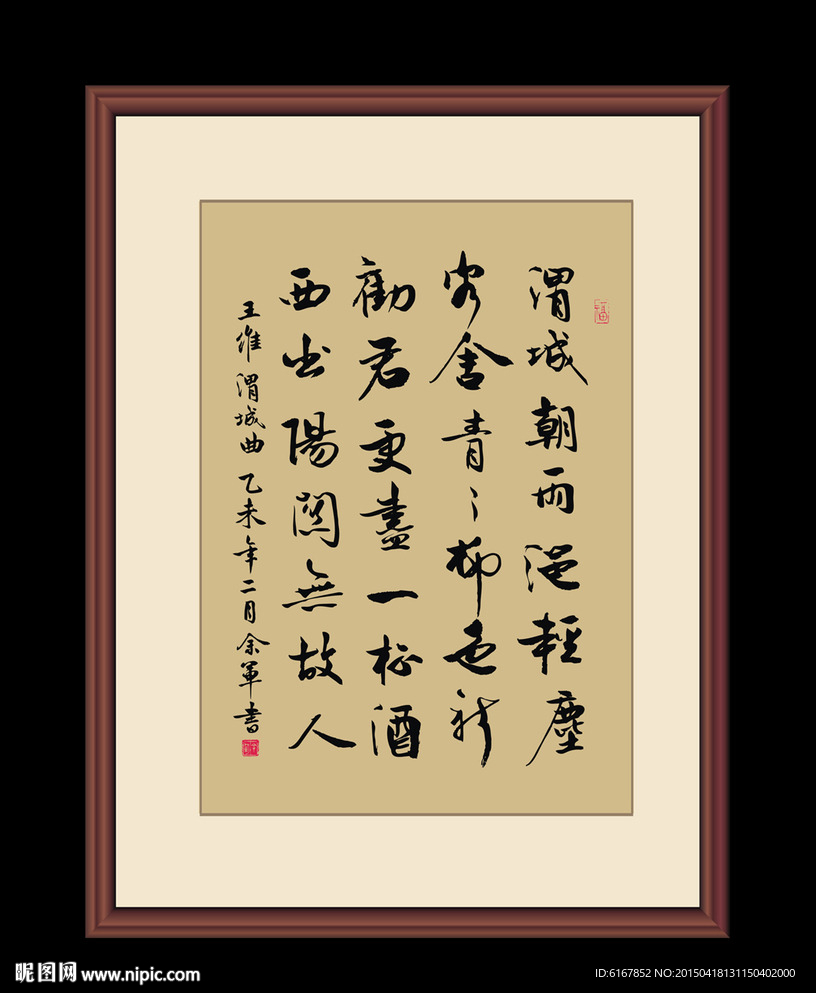 渭城朝雨浥輕塵
客舍青〻柳色新
勸君更盡一杯酒
西出陽關無故人
王維渭城曲乙未年二月余軍書
福
昵图网 www.nipic.com
ID:6167852 NO:20150418131150402000